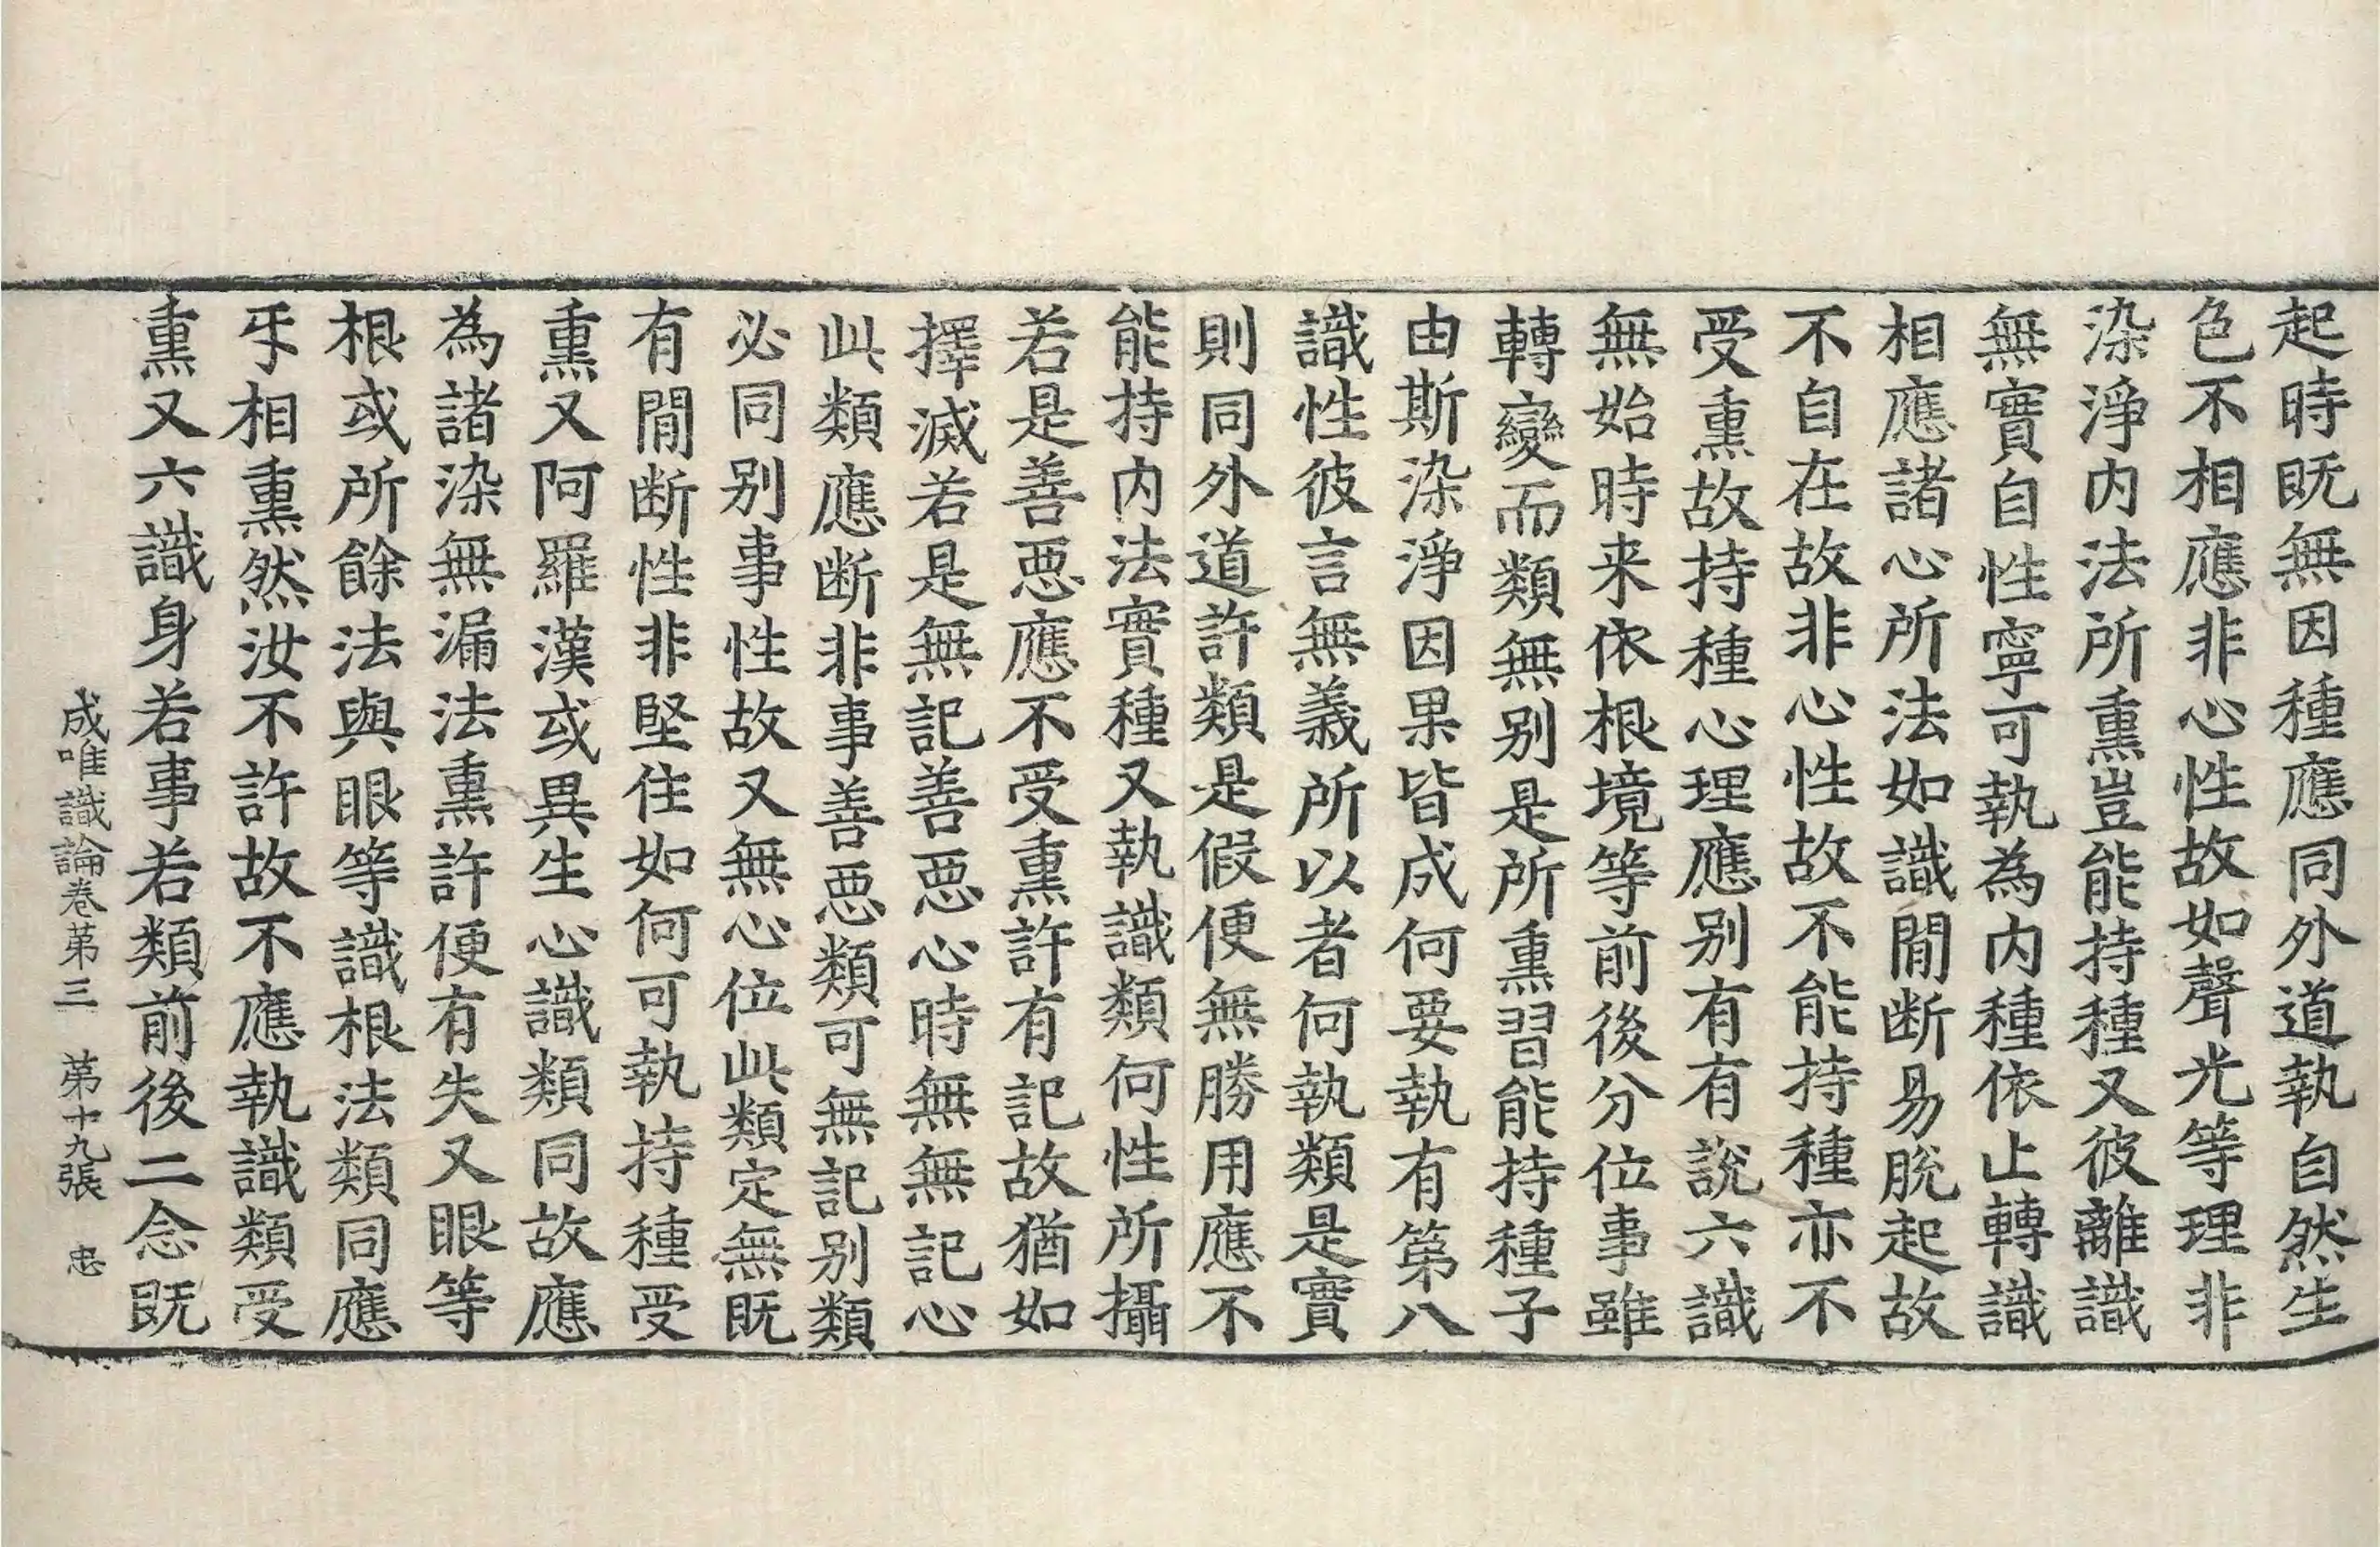 起時既無因種應同外道執自然生
色不相應非心性故如聲光等理非
染淨内法所熏豈能持種又彼離識
無實自性寧可執為内種依止轉識
相應諸心所法如識間断易脫起故
不自在故非心性故不能持種亦不
受熏故持種心理應别有有說六識
無始時来依根境等前後分位事雖
轉變而類無别是所熏習能持種子
由斯染淨因果皆成何要執有第八
識性彼言無義所以者何執類是實
則同外道許類是假便無勝用應不
能持内法實種又執識類何性所攝
若是善惡應不受熏許有記故猶如
擇滅若是無記善惡心時無無記心
此類應断非事善惡類可無記别類
必同别事性故又無心位此類定無既
有間断性非堅住如何可執持種受
熏又阿羅漢或異生心識類同故應
為諸染無漏法熏許便有失又眼等
根或所餘法與眼等識根法類同應
㸦相熏然汝不許故不應執識類受
熏又六識身若事若類前後二念既
成唯識論卷第三 第十九張 忠